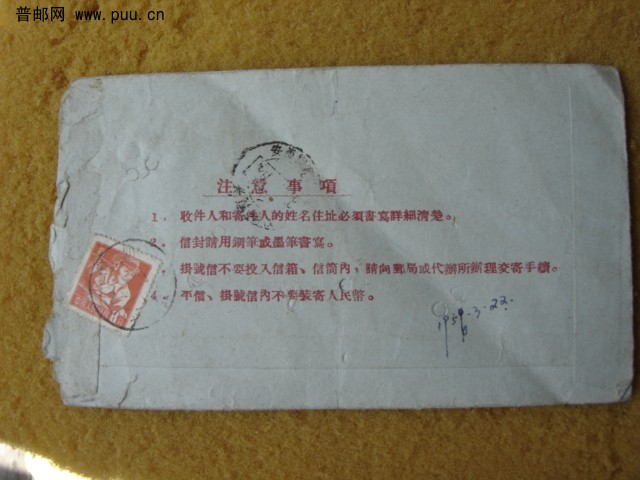 普邮网 www.puu.cn
注意事項
1. 收件人和寄件人的姓名住址必須書寫詳細清楚。
2. 信封請用鋼筆或墨筆書寫。
掛號信不要投入信箱、信筒內，請向郵局或代辦所辦理交寄手續。
4. 平信、掛號信內不要裝寄人民幣。
3-22.